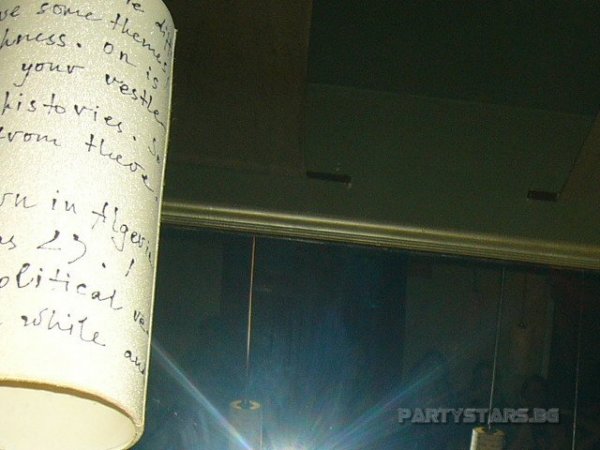 e diff
ve some themes
hness. on is
your vestle
histories. Se
from there.
wn in Algeria
as 27. !
political ve
while and
PARTYSTARS.BG